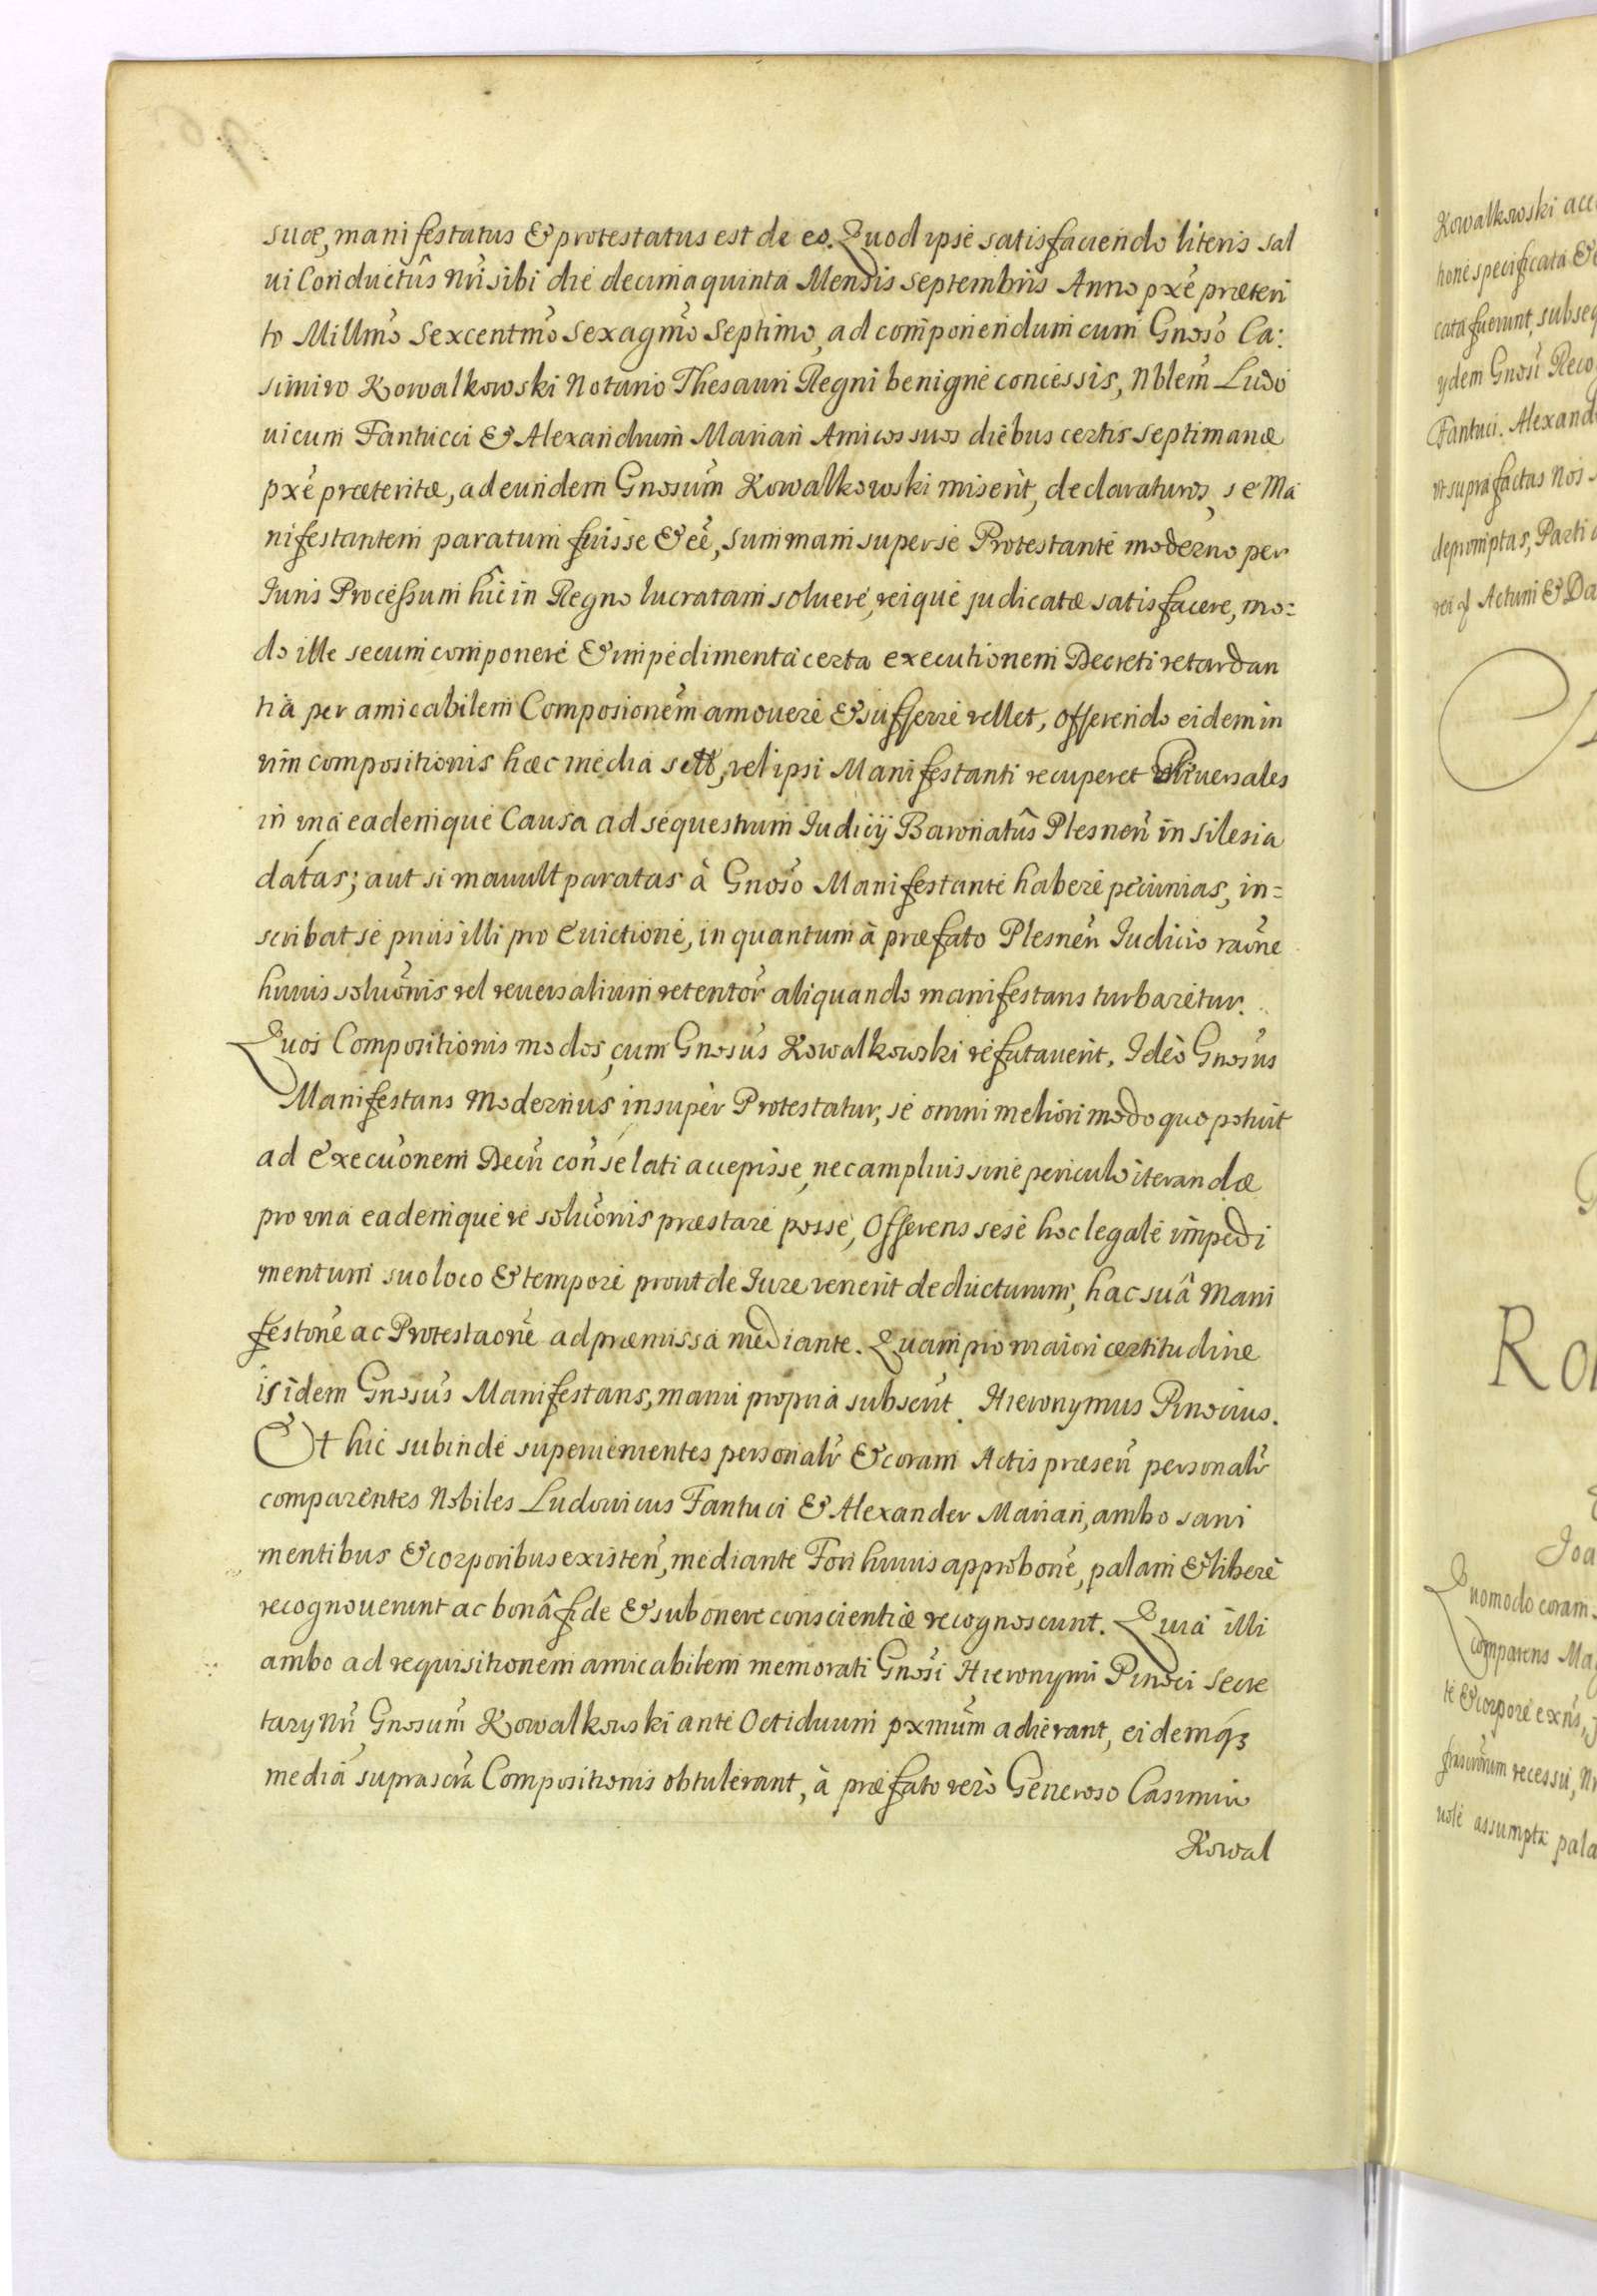 suæ, manifestatus & protestatus est de eo. Quod ipse satisfaciendo literis sal
ui Conductûs Nri sibi die decima quinta Mensis Septembris Anno pxe præteri
to Millmo Sexcentmo Sexagmo Septimo, ad componendum cum Gnoso Ca:
simiro Kowalkowski Notario Thesauri Regni benigne concessis, Nblem Ludo
uicum Fantucci & Alexandrum Mariani Amicos suos diebus certis septimanæ
pxe præteritæ, ad eundem Gnosum Kowalkowski miserit, declaraturos, se Ma
nifestantem paratum fuisse & ee, summam super se Protestante moderno per
Iuris Processum hic in Regno lucratam soluere, reique judicatæ satisfacere, mo=
do ille secum componere & impedimenta certa executionem Decreti retardan
tia per amicabilem Composionem amouere & sufferre vellet, offerendo eidem in
vim compositionis hæc media scil, vel ipsi Manifestanti recuperet Reuersales
in una eademque Causa ad sequestrum Iudicij Baronatûs Plesnen in Silesia
datas; aut si mauult paratas à Gnoso Manifestante habere pecunias, in=
scribat se prius illi pro Euictione, in quantum à præfato Plesnen Iudicio raone
huius soluonis vel reuersalium retentor aliquando manifestans turbaretur.
Quos Compositionis modos, cum Gnosus Kowalkowski refutauerit, Ideò Gnosus
Manifestans Modernus insuper Protestatur, se omni meliori modo quo potuit
ad Execuonem Decri con se lati accepisse, nec amplius sine periculo iterandæ
pro una eademque re soluonis præstare posse, Offerens sese hoc legale impedi
mentum suo loco & tempore prout de Iure venerit deducturum, hac suâ Mani
festone ac Protestaone ad præmissa mediante. Quam pro maiori certitudine
is idem Gnosus Manifestans, manu propria subscrit. Hieronymus Pinocius.
Et hic subinde superuenientes personalr & coram Actis præsen personalr
comparentes Nobiles Ludouicus Fantuci & Alexander Mariani, ambo sani
mentibus & corporibus existen, mediante Fori huius approbone, palam & libere
recognouerunt ac bonâ fide & sub onere conscientiæ recognoscunt. Quia illi
ambo ad requisitionem amicabilem memorati Gnosi Hieronymi Pinoci Secre
tarij Nri Gnosum Kowalkowski ante Octiduum pxmum adierant, eidemq3
media suprascra Compositionis obtulerant, à præfato verò Generoso Casimiro
Kowal